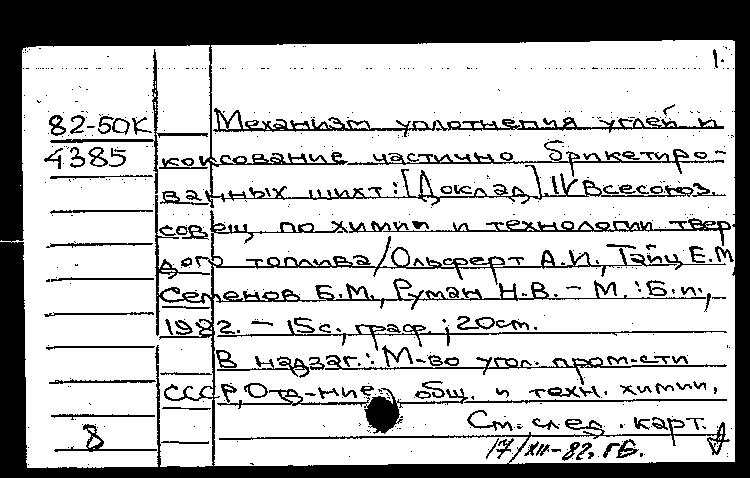 1.
82-50К Механизм уплотнения углей и
4385 коксование частично брикетиро-
ванных шихт: [Доклад]. IV Всесоюз.
совещ. по химии и технологии твер-
дого топлива/Ольферт А.И., Тайц Е.М.,
Семенов Б.М., Руман Н.В. – М.: Б.и.,
1982. – 15с., граф.; 20см.
В надзаг.: М-во угол. пром-сти
СССР, Отд-ние общ. и техн. химии.
См. след. карт.
8 17/XII-82. ГБ.